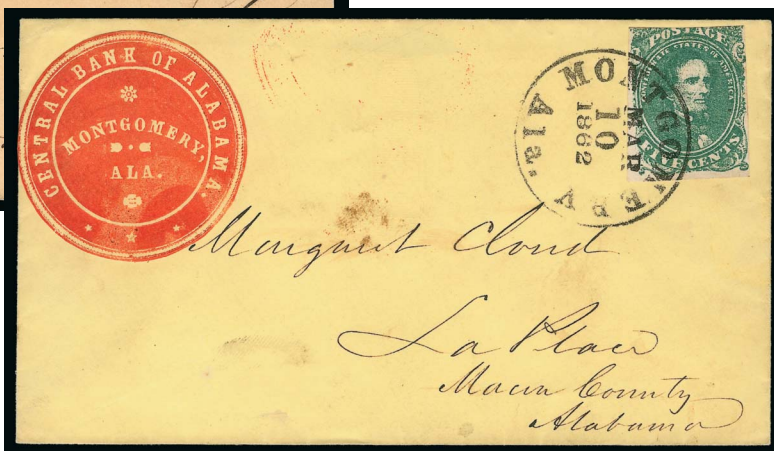 CENTRAL BANK OF ALABAMA.
MONTGOMERY,
ALA.
MONTGOMERY Ala.
MAR
10
1862
POSTAGE
CONFEDERATE STATES OF AMERICA
FIVE CENTS
Margaret Cloud
La Place
Macon County
Alabama